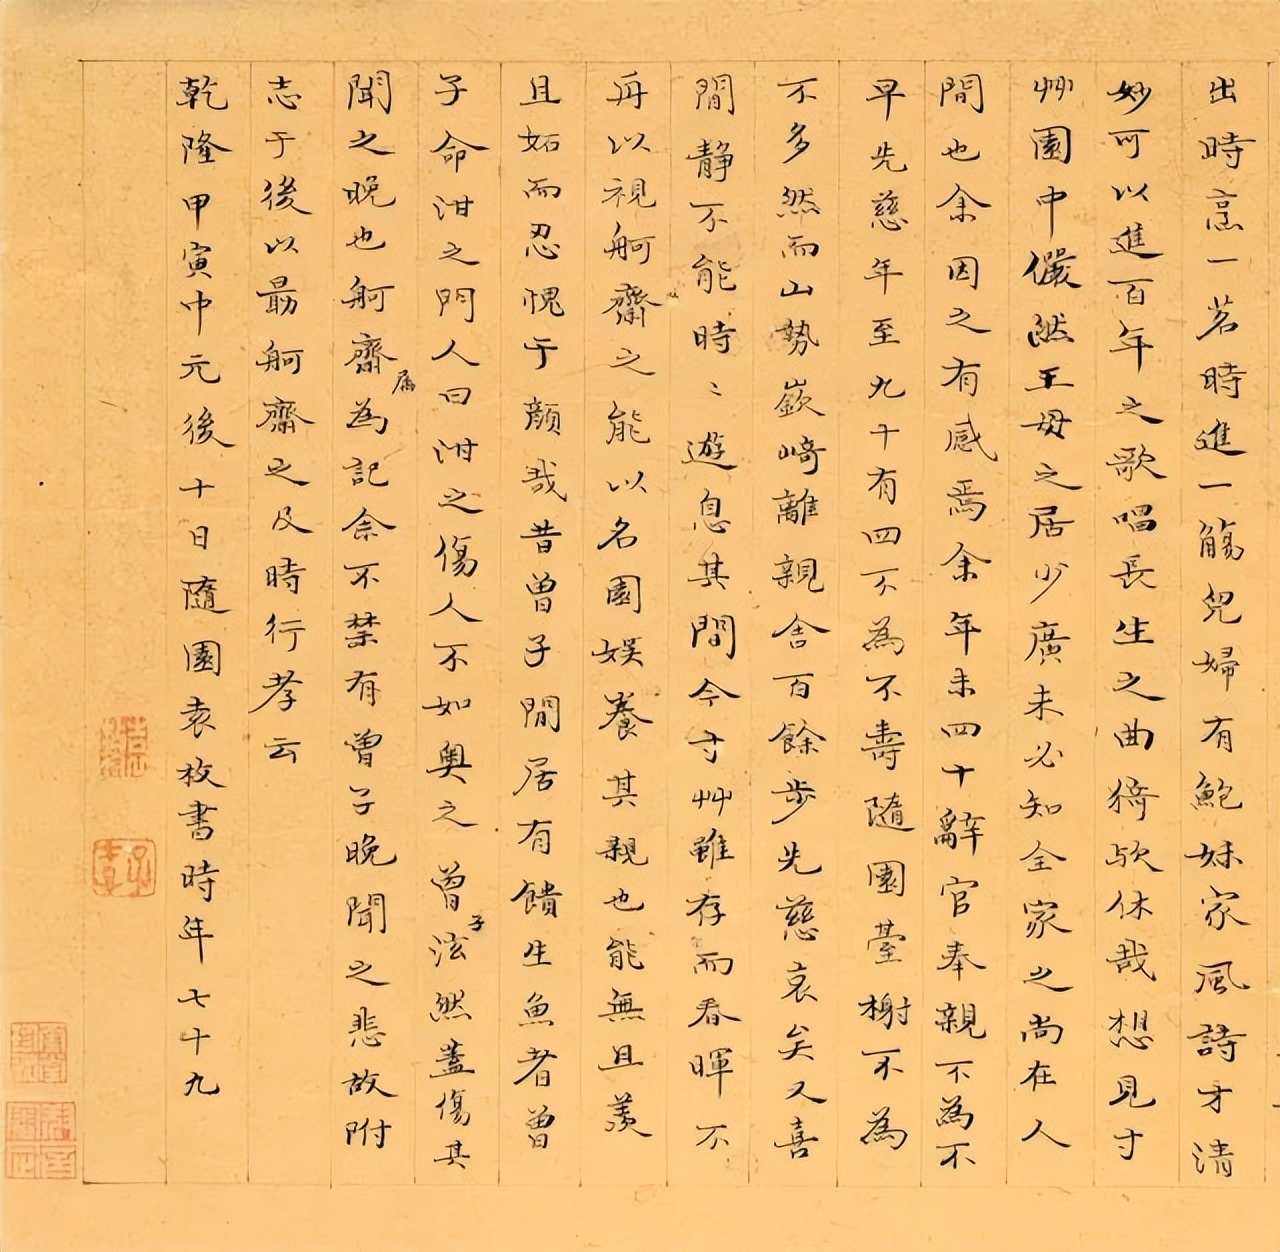 出時烹一茗時進一觴兒婦有鮑妹家風詩才清
妙可以進百年之歌唱長生之曲猗歟休哉想見寸
艸園中儼然王母之居少廣未必知全家之尚在人
間也余因之有感焉余年未四十辭官奉親不為不
早先慈年至九十有四不為不壽隨園臺榭不為
不多然而山勢嶔崎離親舍百餘步先慈哀矣又喜
閒靜不能時〻遊息其間今寸艸雖存而春暉不
再以視舸齋之能以名園娛養其親也能無且羨
且妬而忍愧于顏哉昔曾子閒居有饋生魚者曾
子命泔之門人曰泔之傷人不如奧之曾子泫然蓋傷其
聞之晚也舸齋屬為記余不禁有曾子晚聞之悲故附
志于後以勗舸齋之及時行孝云
乾隆甲寅中元後十日隨園袁枚書時年七十九